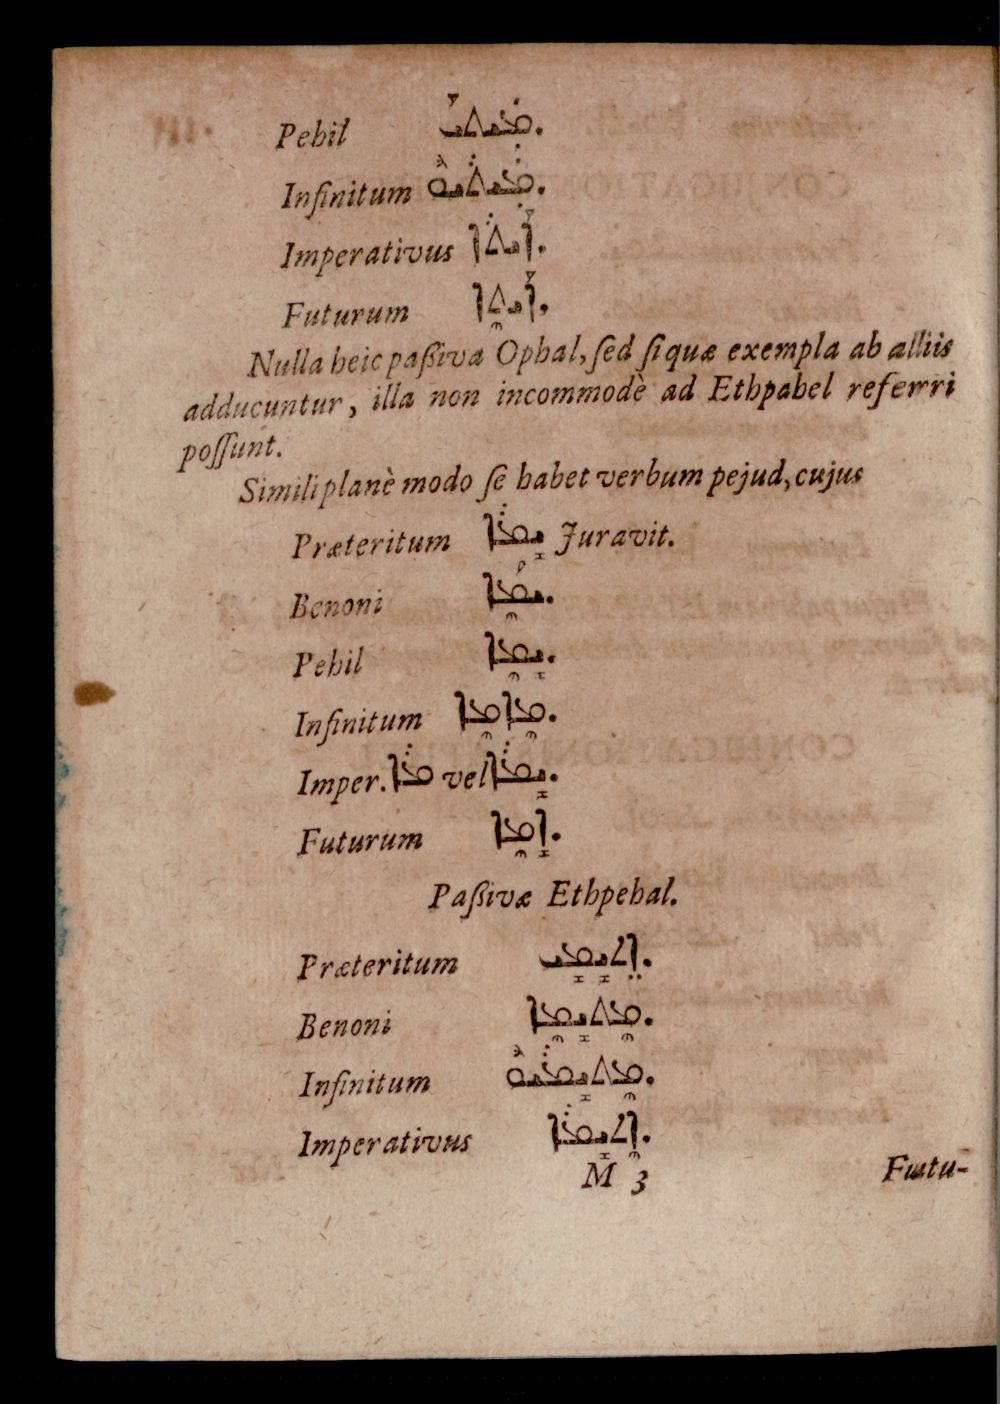 Pehil ܡܝܬܝ.
Infinitum ܡܝܬܝܘ.
Imperativus ܐܝܬܐ.
Futurum ܐܝܬܐ.
Nulla heic paſſiva Ophal, ſed ſi quæ exempla ab alliis
adducuntur, illa non incommodè ad Ethpahel referri
poſſunt.
Simili planè modo ſe habet verbum pejud, cujus
Præteritum ܝܡܐ Juravit.
Benoni ܝܡܐ.
Pehil ܝܡܐ.
Infinitum ܡܐܡܐ.
Imper. ܡܐ vel ܝܡܐ.
Futurum ܐܡܐ.
Paſſivæ Ethpehal.
Præteritum ܐܬܝܡܝ.
Benoni ܡܬܝܡܐ.
Infinitum ܡܬܝܡܝܘ.
Imperativus ܐܬܝܡܐ.
M 3 Futu-